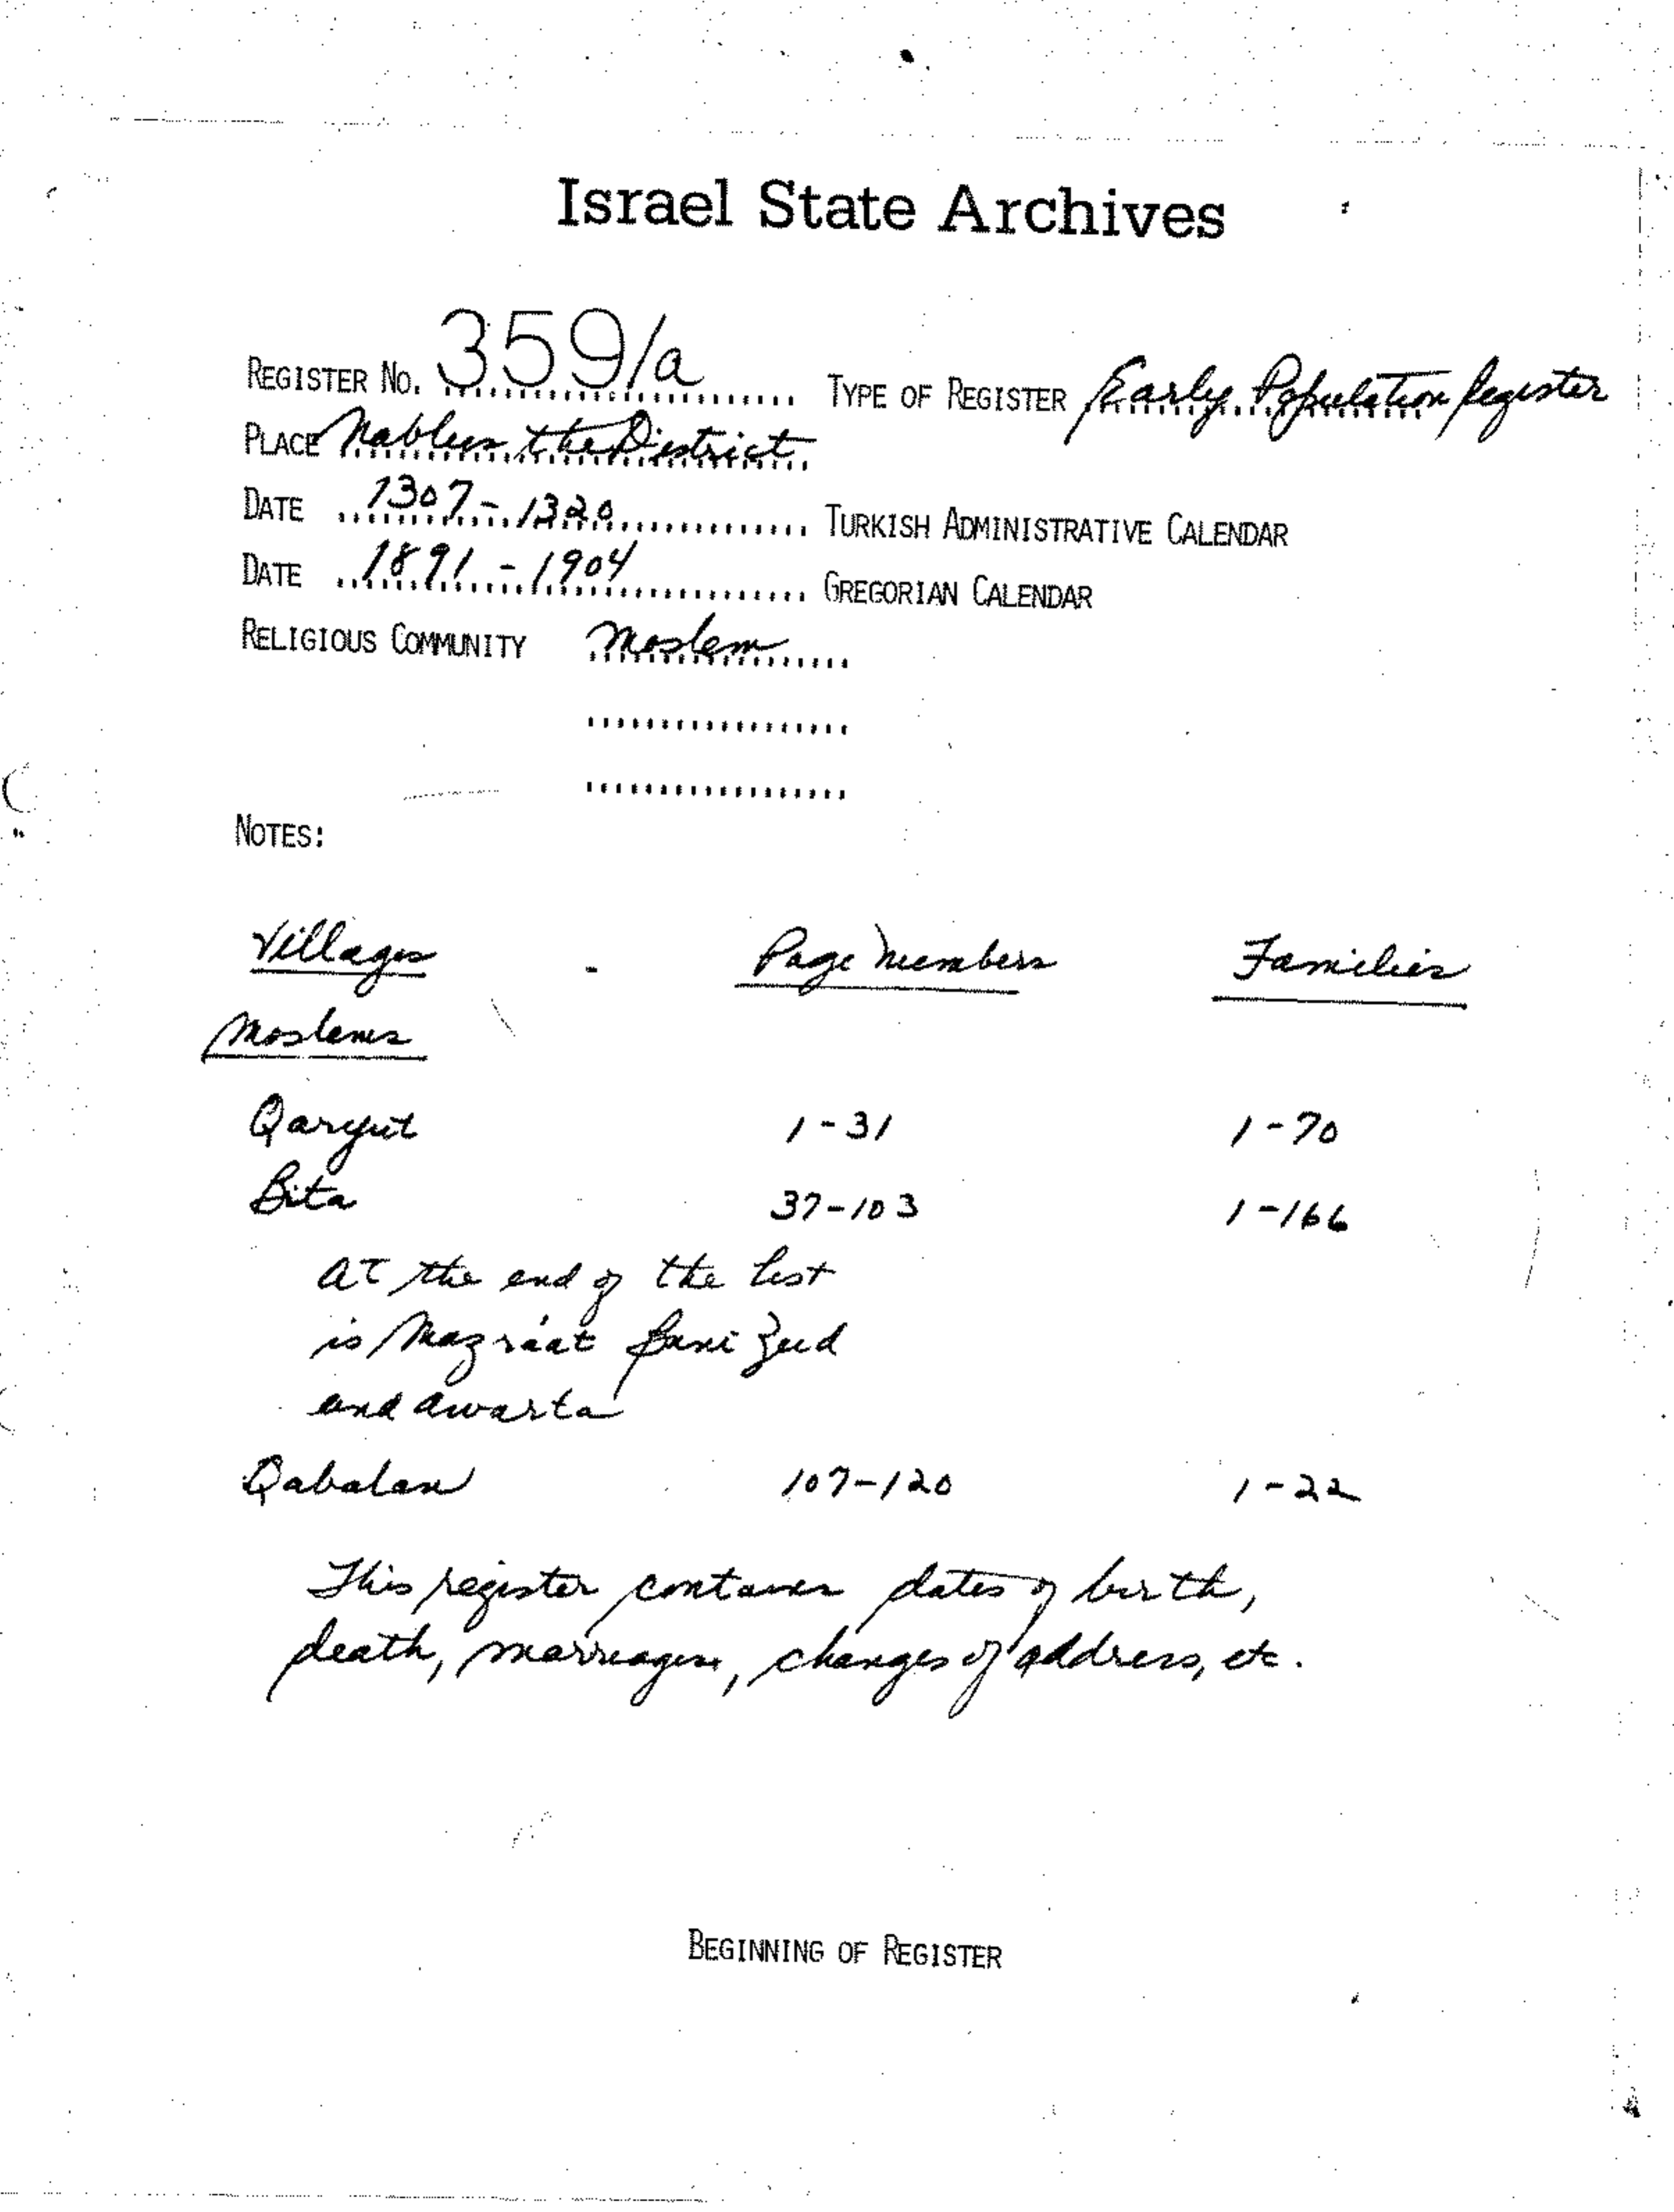 Israel State Archives
REGISTER NO. 359/a TYPE OF REGISTER Early Population Register
PLACE Nablus the District
DATE 1307-1320 TURKISH ADMINISTRATIVE CALENDAR
DATE 1891-1904 GREGORIAN CALENDAR
RELIGIOUS COMMUNITY Moslem
NOTES:
Villages - Page Numbers Families
Moslems
Qaryut 1-31 1-70
Bita 37-103 1-166
At the end of the list
is Mazra'at Bani Zeid
and Awarta
Qabalan 107-120 1-22
This register contains dates of birth,
death, marriages, changes of address, etc.
BEGINNING OF REGISTER